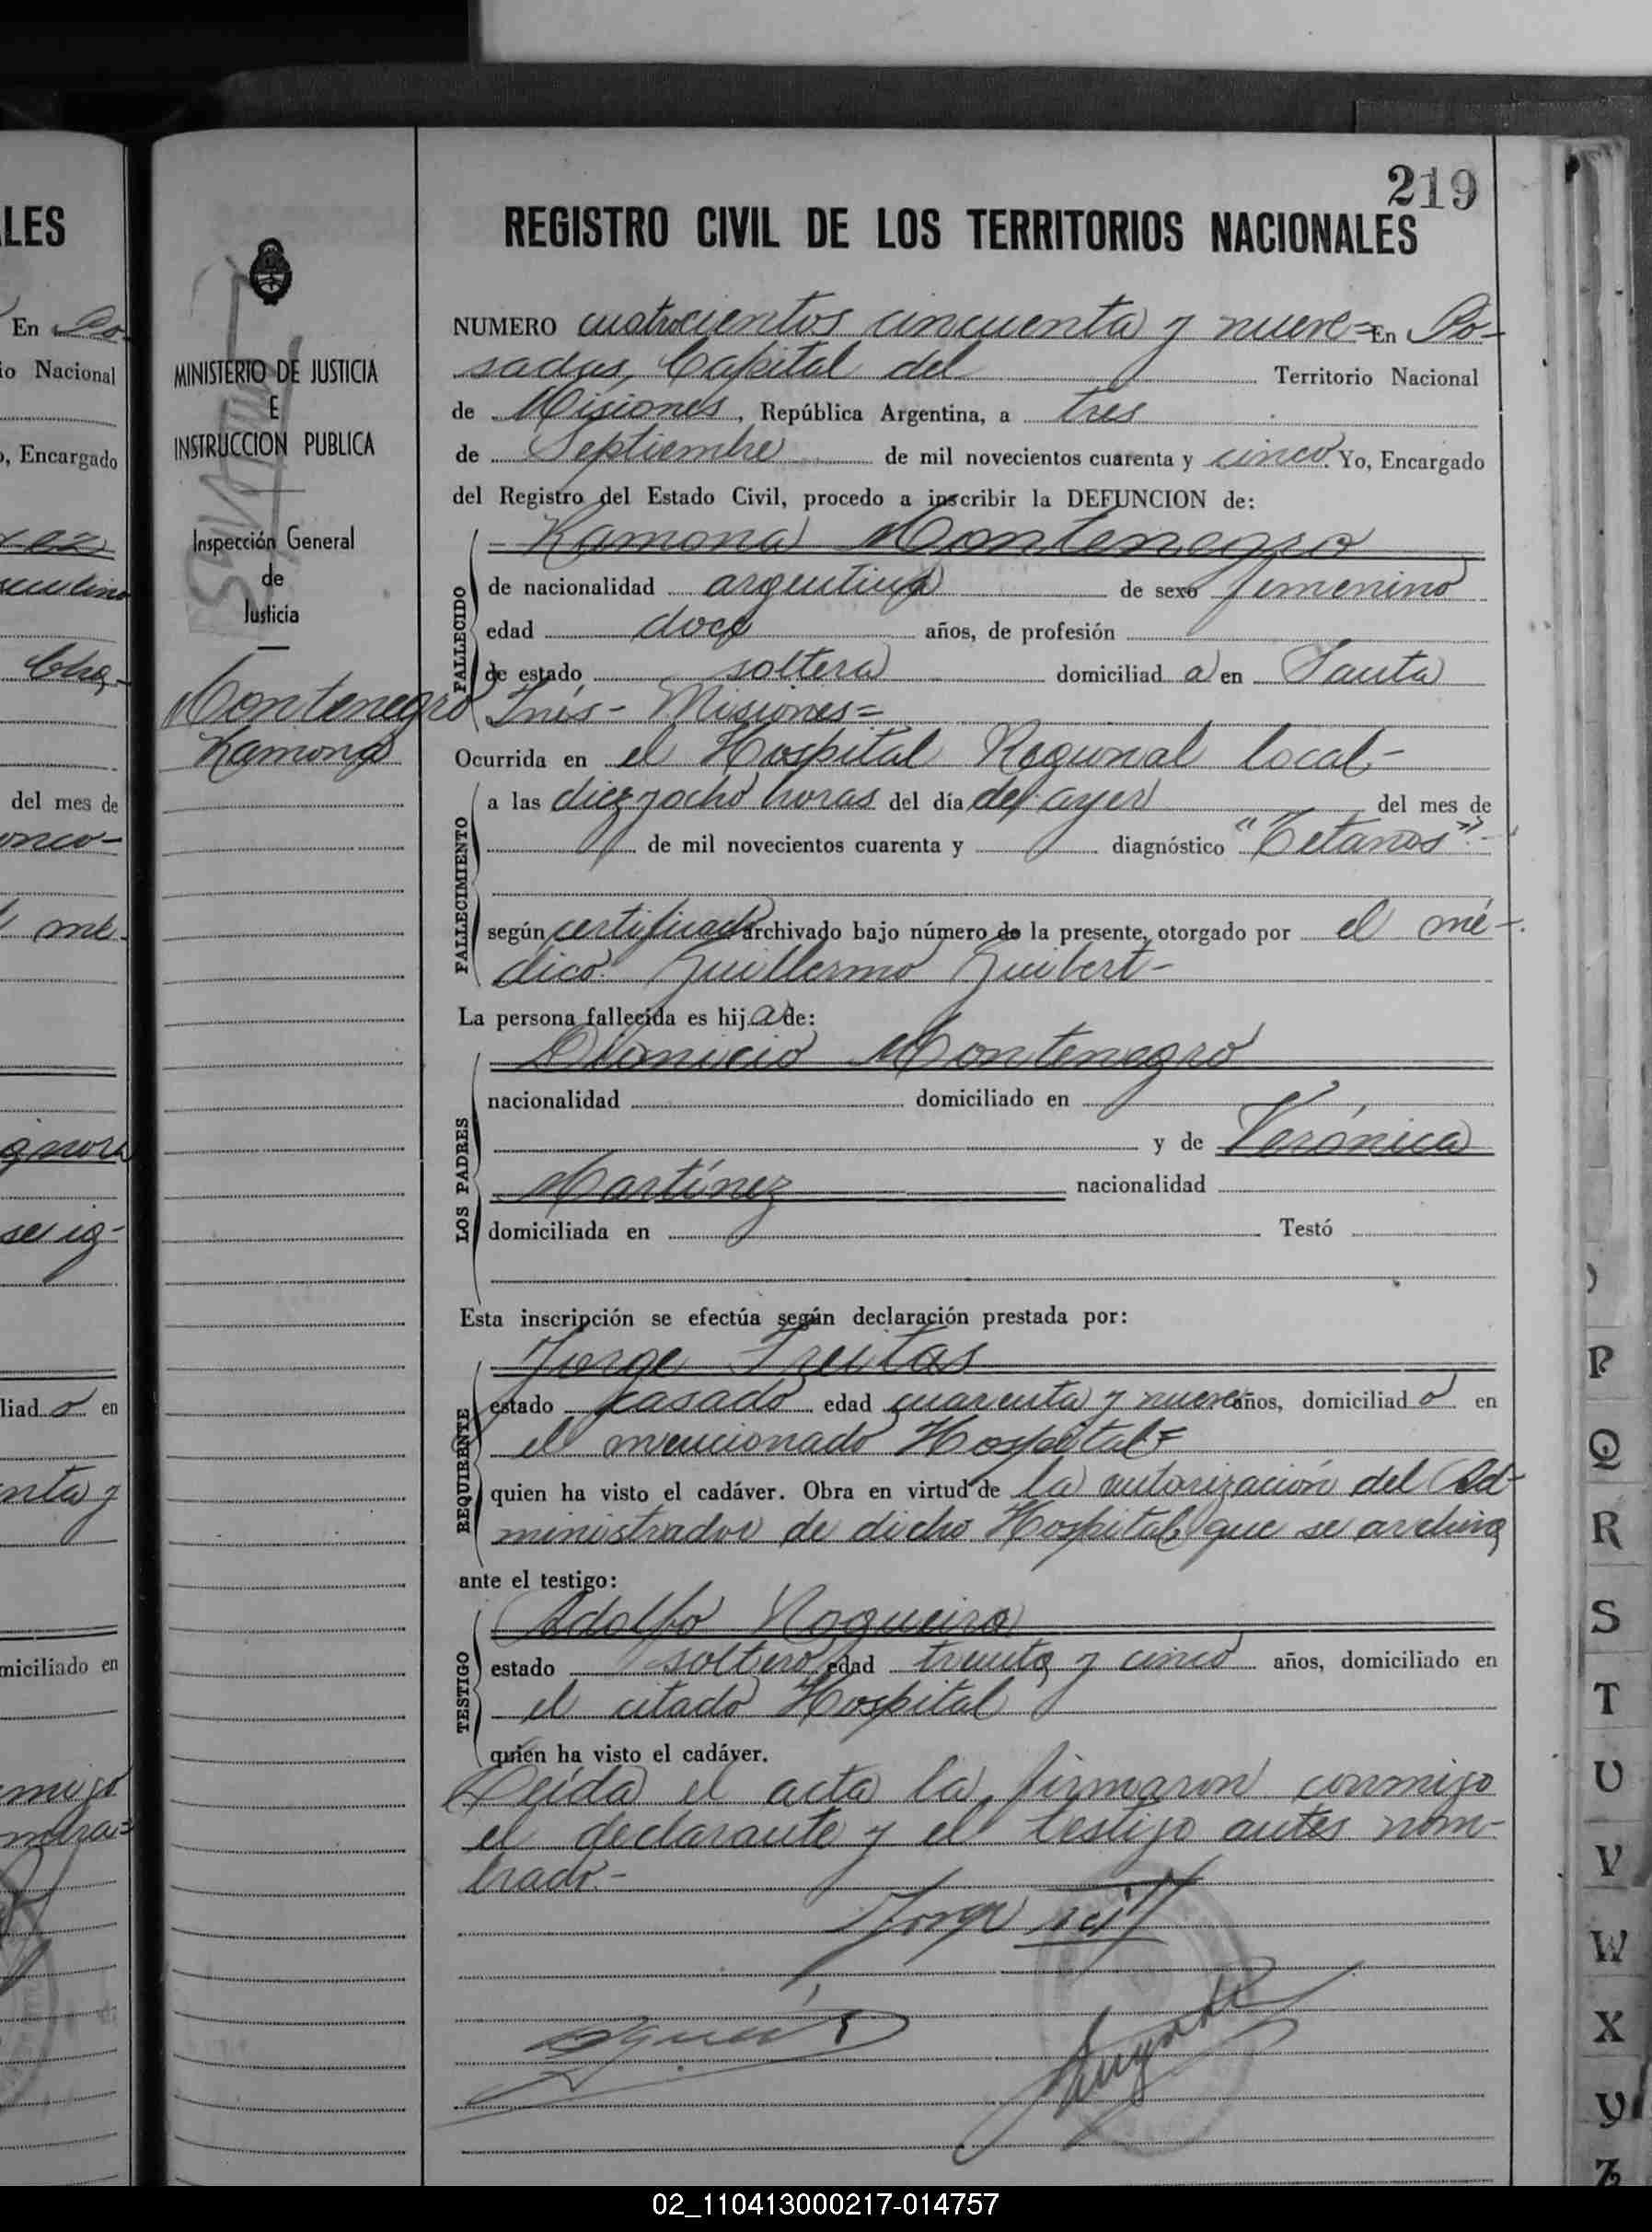 219
REGISTRO CIVIL DE LOS TERRITORIOS NACIONALES
NUMERO cuatrocientos cincuenta y nueve= En Po-
sadas, Capital del Territorio Nacional
de Misiones, República Argentina, a tres
de Septiembre de mil novecientos cuarenta y cinco. Yo, Encargado
del Registro del Estado Civil, procedo a inscribir la DEFUNCION de:
FALLECIDO
Ramona Montenegro
de nacionalidad argentina de sexo femenino
edad doce años, de profesión
de estado soltera domiciliad a en Santa
Inés- Misiones=
Ocurrida en el Hospital Regional local-
FALLECIMIENTO
a las diez y ocho horas del día de ayer del mes de
de mil novecientos cuarenta y diagnóstico "Tetanos"-
según certificado archivado bajo número de la presente, otorgado por el mé-
dico Guillermo Guibert-
La persona fallecida es hij a de:
LOS PADRES
Montenegro
nacionalidad domiciliado en
y de Verónica
Martínez nacionalidad
domiciliada en Testó
Esta inscripción se efectúa según declaración prestada por:
REQUIRENTE
Jorge Freitas
estado casado edad cuarenta y nueve años, domiciliad o en
el mencionado Hospital=
quien ha visto el cadáver. Obra en virtud de la autorización del Ad-
ministrador de dicho Hospital, que se archiva
ante el testigo:
TESTIGO
Adolfo Nogueira
estado soltero edad treinta y cinco años, domiciliado en
el citado Hospital
quien ha visto el cadáver.
Leída el acta la firmaron conmigo
el declarante y el testigo antes nom-
brado.-
Jorge
MINISTERIO DE JUSTICIA
E
INSTRUCCION PUBLICA
Inspección General
de
Justicia
Montenegro
Ramona
LES
En Po-
io Nacional
o, Encargado
del mes de
liad o en
miciliado en
P
Q
R
S
T
U
V
W
X
Y
Z
02_110413000217-014757